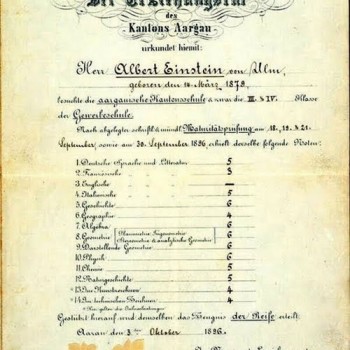 Der Erziehungsrat
des
Kantons Aargau
urkundet hiemit:
Herr Albert Einstein von Ulm,
geboren den 14. März 1879,
besuchte die aargauische Kantonsschule & zwar die III. & IV. Klasse
der Gewerbeschule.
Nach abgelegter schriftl. & mündl. Maturitätsprüfung am 18., 19. & 21.
September, sowie am 30. September 1896, erhielt derselbe folgende Noten:
1. Deutsche Sprache und Litteratur 5
2. Französische 3
3. Englische —
4. Italienische 5
5. Geschichte 6
6. Geographie 4
7. Algebra 6
8. Geometrie (Planimetrie, Trigonometrie 6
Stereometrie & analytische Geometrie)
9. Darstellende Geometrie 6
10. Physik 6
11. Chemie 5
12. Naturgeschichte 5
*13. Im Kunstzeichnen 4
*14. Im technischen Zeichnen 4
* Hier gelten die Jahresleistungen.
Gestützt hierauf wird demselben das Zeugnis der Reife erteilt.
Aarau den 3ten Oktober 1896.